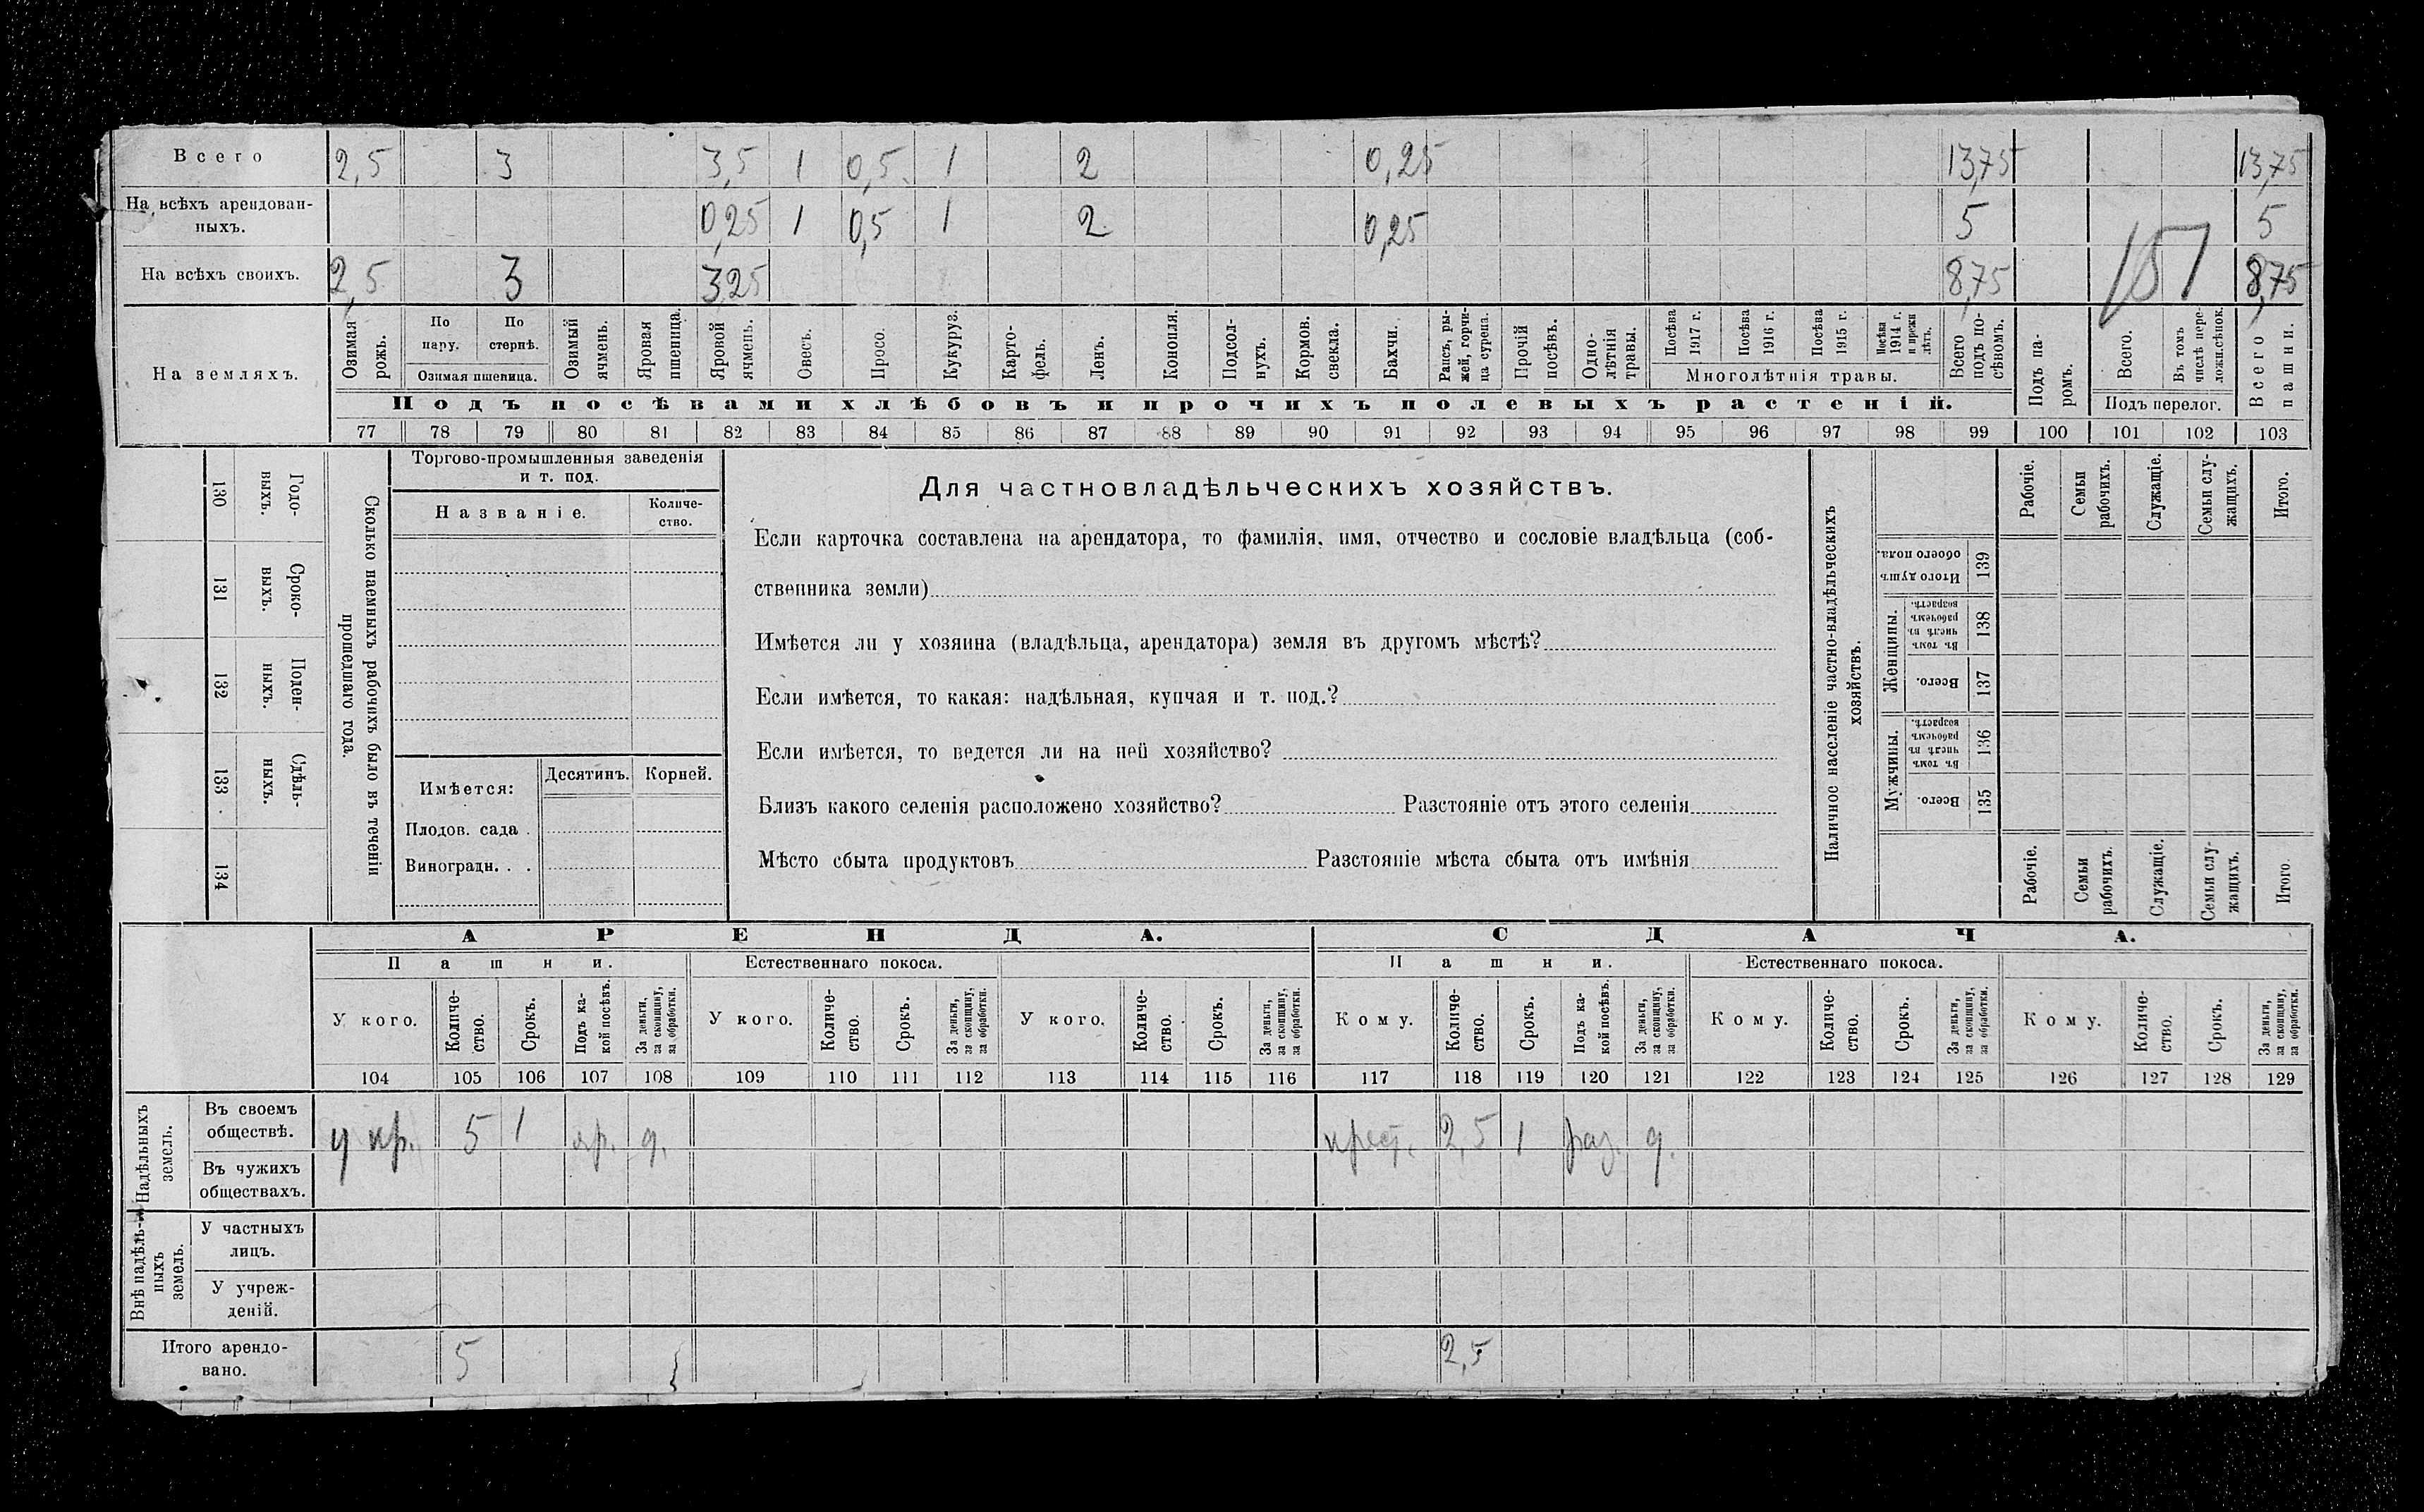 Всего 2,5 3 3,5 1 0,5 1 2 0,25 13,75 13,75
На всѣхъ арендован-
ныхъ. 0,25 1 0,5 1 2 0,25 5 5
На всѣхъ своихъ. 2,5 3 3 25 8,75 8,75
157
На земляхъ.
Озимая рожь.
По пару.
По стернѣ.
Озимая пшеница.
Озимый ячмень.
Яровая пшеница.
Яровой ячмень.
Овесъ.
Просо.
Кукуруз.
Карто-
фель.
Ленъ.
Конопля.
Подсол-
нухъ.
Кормов.
свекла.
Бахчи.
Рапсъ, ры-
жей, горчи-
ца сурепа.
Прочій
посѣвъ.
Одно-
лѣтнія
травы.
Посѣва
1917 г.
Посѣва
1916 г.
Посѣва
1915 г.
Посѣва
1914 г.
и прежн
лѣтъ.
Многолѣтнія травы.
Всего
подъ по-
сѣвомъ.
Подъ па-
ромъ.
Всего.
Въ томъ
числѣ пере-
ложн.сѣнок.
Подъ перелог.
Всего
пашни.
Подъ посѣвами хлѣбовъ и прочихъ полевыхъ растеній.
77 78 79 80 81 82 83 84 85 86 87 88 89 90 91 92 93 94 95 96 97 98 99 100 101 102 103
130 Годо-
ныхъ.
131 Сроко-
выхъ.
132 Поден-
ныхъ.
133 Сдѣль-
ныхъ.
134
Сколько наемныхъ рабочихъ было въ теченіи
прошедшаго года.
Торгово-промышленныя заведенія
и т. под.
Названіе.
Количе-
ство.
Имѣется:
Десятинъ.
Корней.
Плодов. сада .
Виноградн. . .
Для частновладѣльческихъ хозяйствъ.
Если карточка составлена на арендатора, то фамилія, имя, отчество и сословіе владѣльца (соб-
ственника земли)
Имѣется ли у хозяина (владѣльца, арендатора) земля въ другомъ мѣстѣ?
Если имѣется, то какая: надѣльная, купчая и т. под.?
Если имѣется, то ведется ли на ней хозяйство?
Близъ какого селенія расположено хозяйство? Разстояніе отъ этого селенія
Мѣсто сбыта продуктовъ Разстояніе мѣста сбыта отъ имѣнія
Наличное населеніе частно-владѣльческихъ
хозяйствъ.
Рабочіе.
Семьи
рабочихъ.
Служащіе.
Семьи слу-
жащихъ.
Итого.
Итого душъ
обоего пола. 139
Женщины.
Въ томъ
числѣ въ
рабочемъ
возрастѣ. 138
Всего. 137
Мужчины.
Въ томъ
числѣ въ
рабочемъ
возрастѣ. 136
Всего. 135
Рабочіе.
Семьи
рабочихъ.
Служащіе.
Семьи слу-
жащихъ.
Итого
АРЕНДА. СДАЧА.
Пашни. Естественнаго покоса. Пашни. Естественнаго покоса.
У кого.
Количе-
ство.
Срокъ.
Подъ ка-
кой посѣвъ.
За деньги,
за скопщину,
за обработки.
У кого.
Количе-
ство.
Срокъ.
За деньги,
за скопщину,
за обработки.
У кого.
Количе-
ство.
Срокъ.
За деньги,
за скопщину,
за обработки.
Кому.
Количе-
ство.
Срокъ.
Подъ ка-
кой посѣвъ.
За деньги,
за скопщину,
за обработки.
Кому.
Количе-
ство.
Срокъ.
За деньги,
за скопщину,
за обработки.
Кому.
Количе-
ство.
Срокъ.
За деньги,
за скопщину,
за обработки.
104 105 106 107 108 109 110 111 112 113 114 115 116 117 118 119 120 121 122 123 124 125 126 127 128 129
Надѣльныхъ
земель.
Въ своемъ
обществѣ. у кр. 5 1 яр. д. крест. 2,5 1 раз. д.
Въ чужихъ
обществахъ.
Внѣ надѣль-
ныхъ
земель.
У частныхъ
лицъ.
У учреж-
деній.
Итого арендо-
вано. 5 2,5